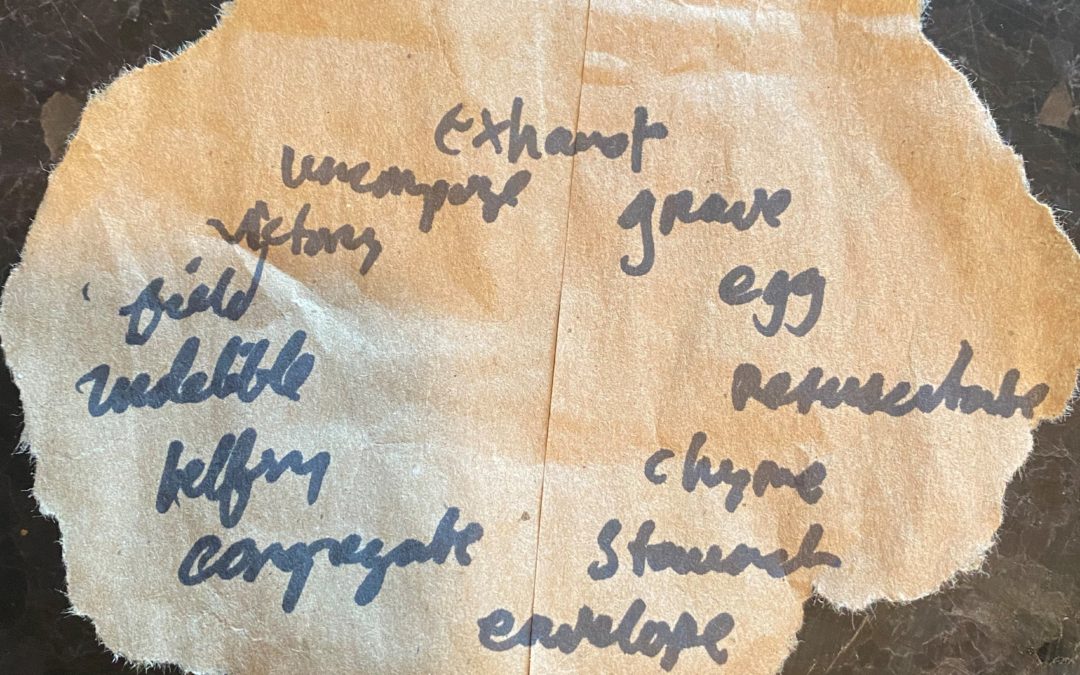 Exhaust
uncompose
grave
victory
egg
field
indelible
resuscitate
belfry
chyme
congregate
stomach
envelope